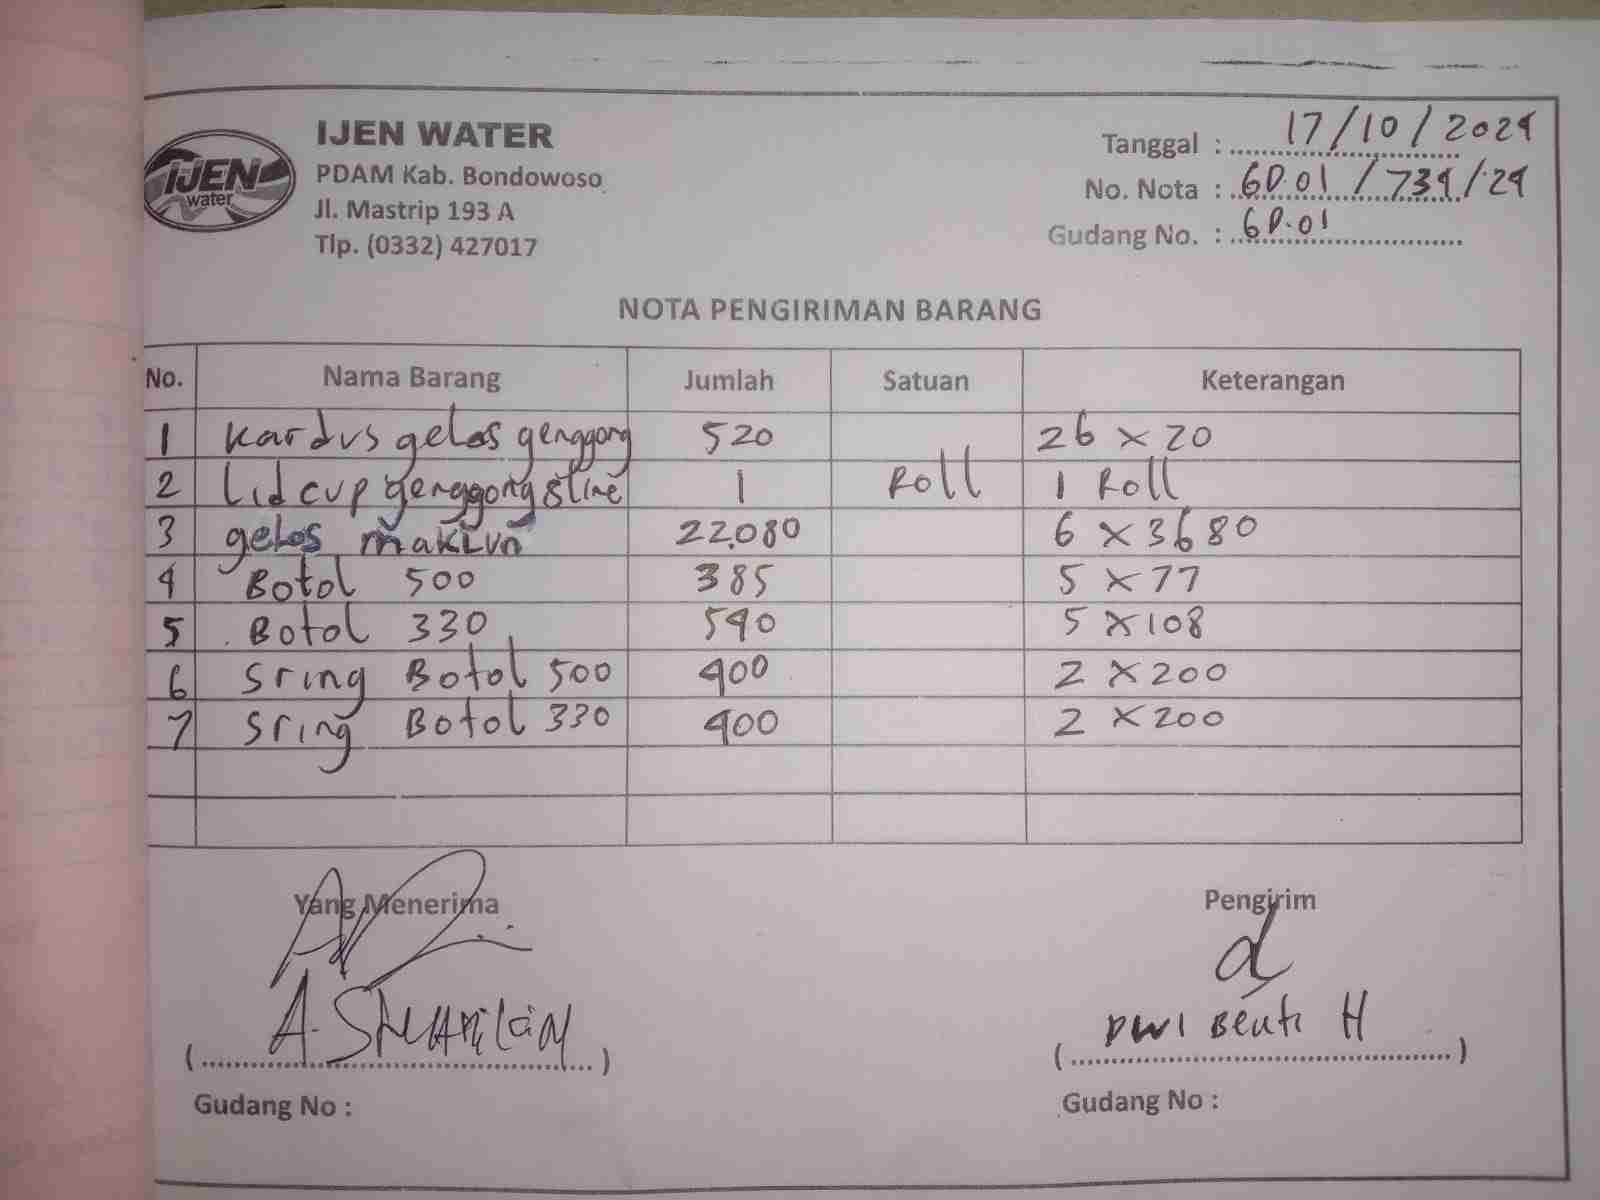 IJEN WATER
IJEN
water
PDAM Kab. Bondowoso
Jl. Mastrip 193 A
Tlp. (0332) 427017
Tanggal : 17/10/2024
No. Nota : GD.01/734/24
Gudang No. : GD.01
NOTA PENGIRIMAN BARANG
No. Nama Barang Jumlah Satuan Keterangan
1 Kardus gelas genggong 520 26 x 20
2 Lid cup genggong 8 line 1 Roll 1 Roll
3 gelas maklun 22.080 6 x 3680
4 Botol 500 385 5 x 77
5 Botol 330 540 5 x 108
6 Sring Botol 500 400 2 x 200
7 Sring Botol 330 400 2 x 200
Yang Menerima Pengirim
A. Dwi H
Gudang No : Gudang No :